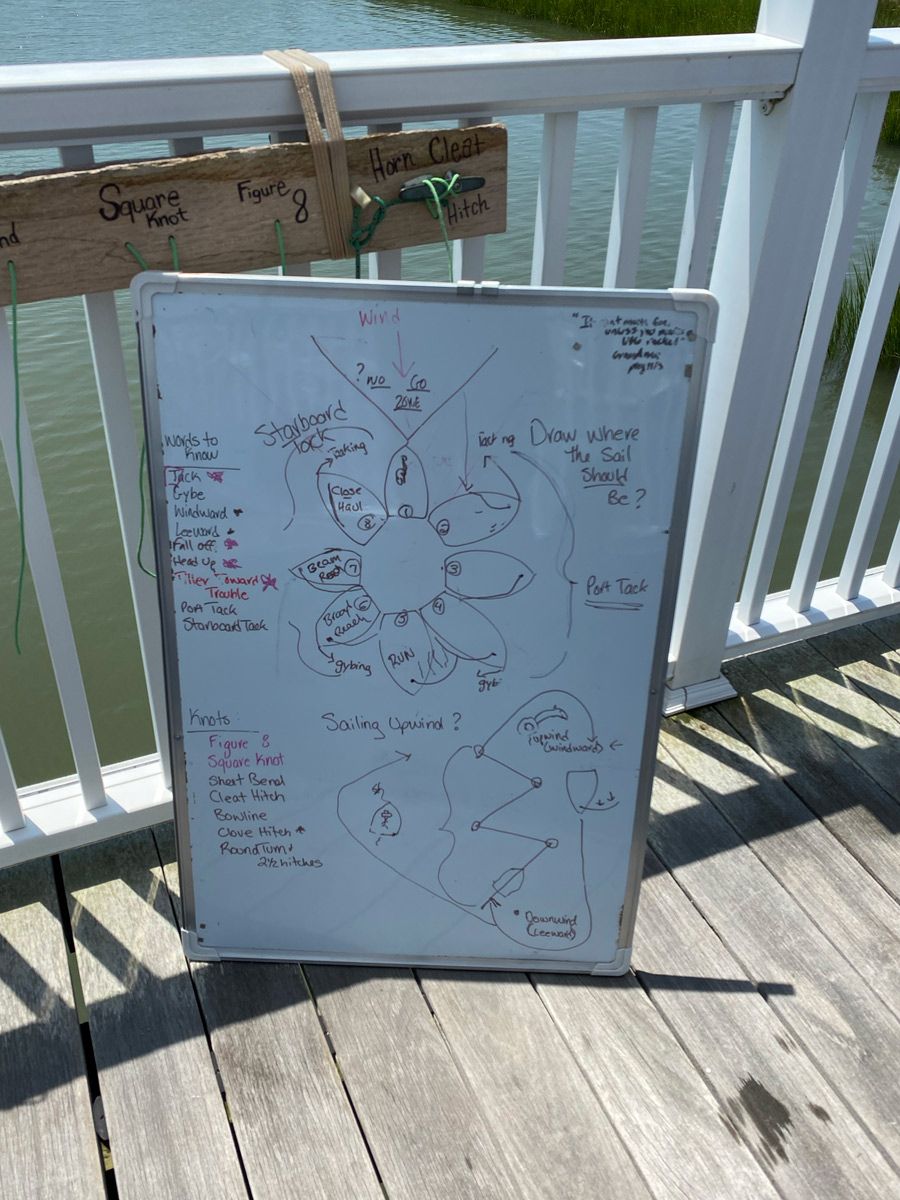 nd
Square
Knot
Figure
8
Horn Cleat
Hitch
Wind
? No Go
Zone
unless you
Words to
Know
Tack
Gybe
Windward
Leeward
Fall off
Head Up
Tiller Toward
Trouble
Port Tack
Starboard Tack
Starboard
Tack
Tacking
Tacking
Draw where
the Sail
Should
Be?
Close
Haul
8
1
Beam
Reach
7
5
Broad
Reach
6
3
4
RUN
Port Tack
gybing
gyb
Knots
Figure 8
Square Knot
Sheet Bend
Cleat Hitch
Bowline
Clove Hitch *
Round Turn +
2 1/2 hitches
Sailing Upwind?
Upwind
(windward)
Downwind
(Leeward)